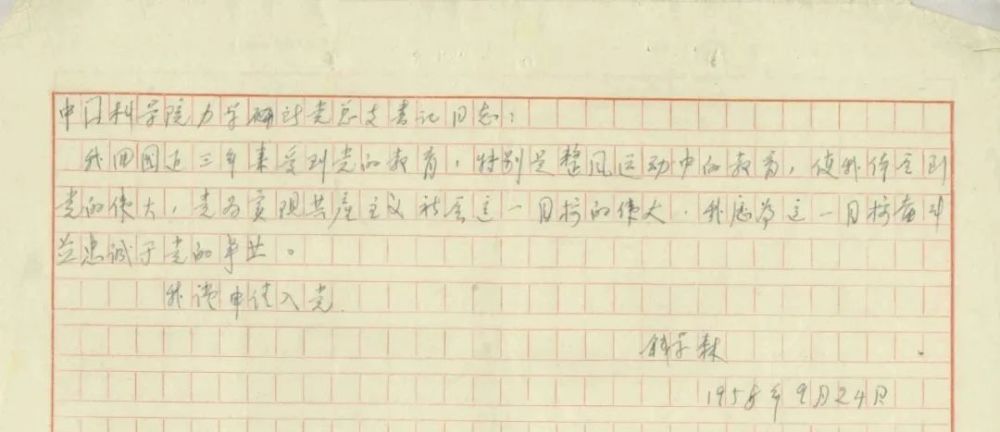 中国科学院力学研究所党总支书记同志：
我回國近三年来受到党的教育，特别是整风运动中的教育，使我体会到
党的伟大，党为实现共产主义社会这一目标的伟大．我愿为这一目标奋斗
并忠诚于党的事业。
我谨申请入党．
钱学森
1958年9月24日